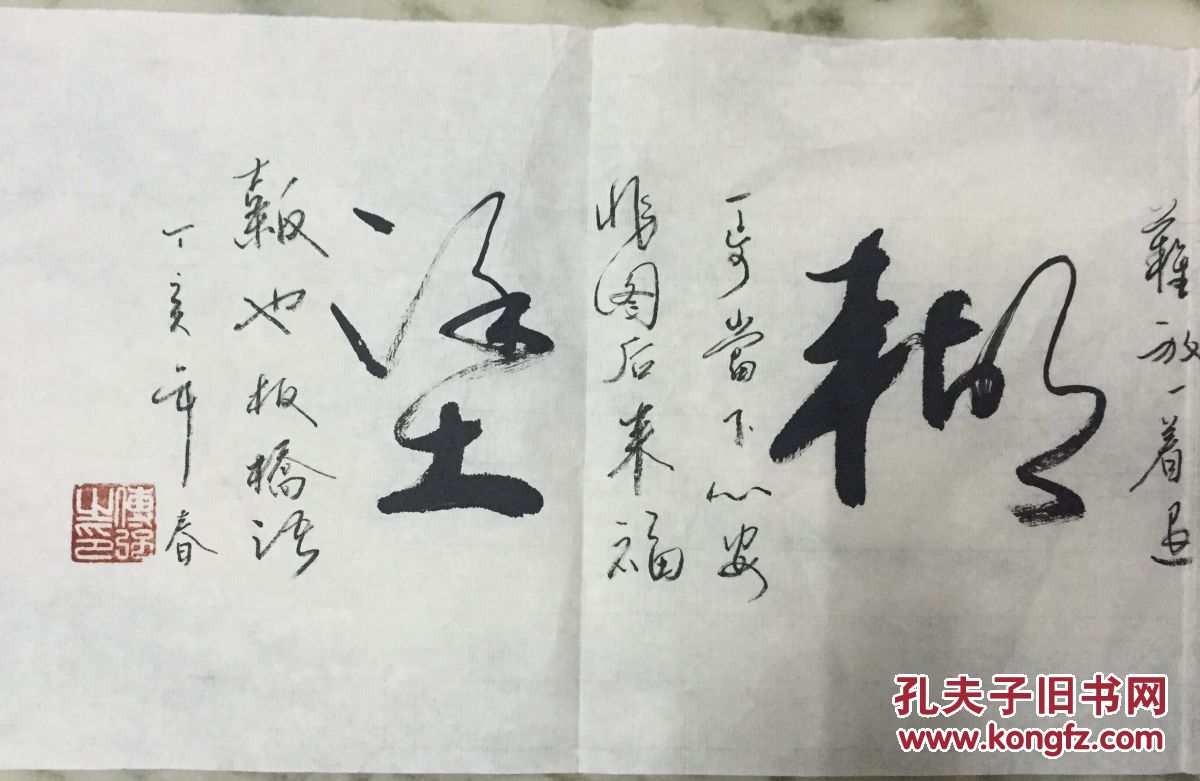 難放一着退
糊
一步當下心安
非图后来福
塗
報也板橋語
丁亥年春
孔夫子旧书网
www.kongfz.com